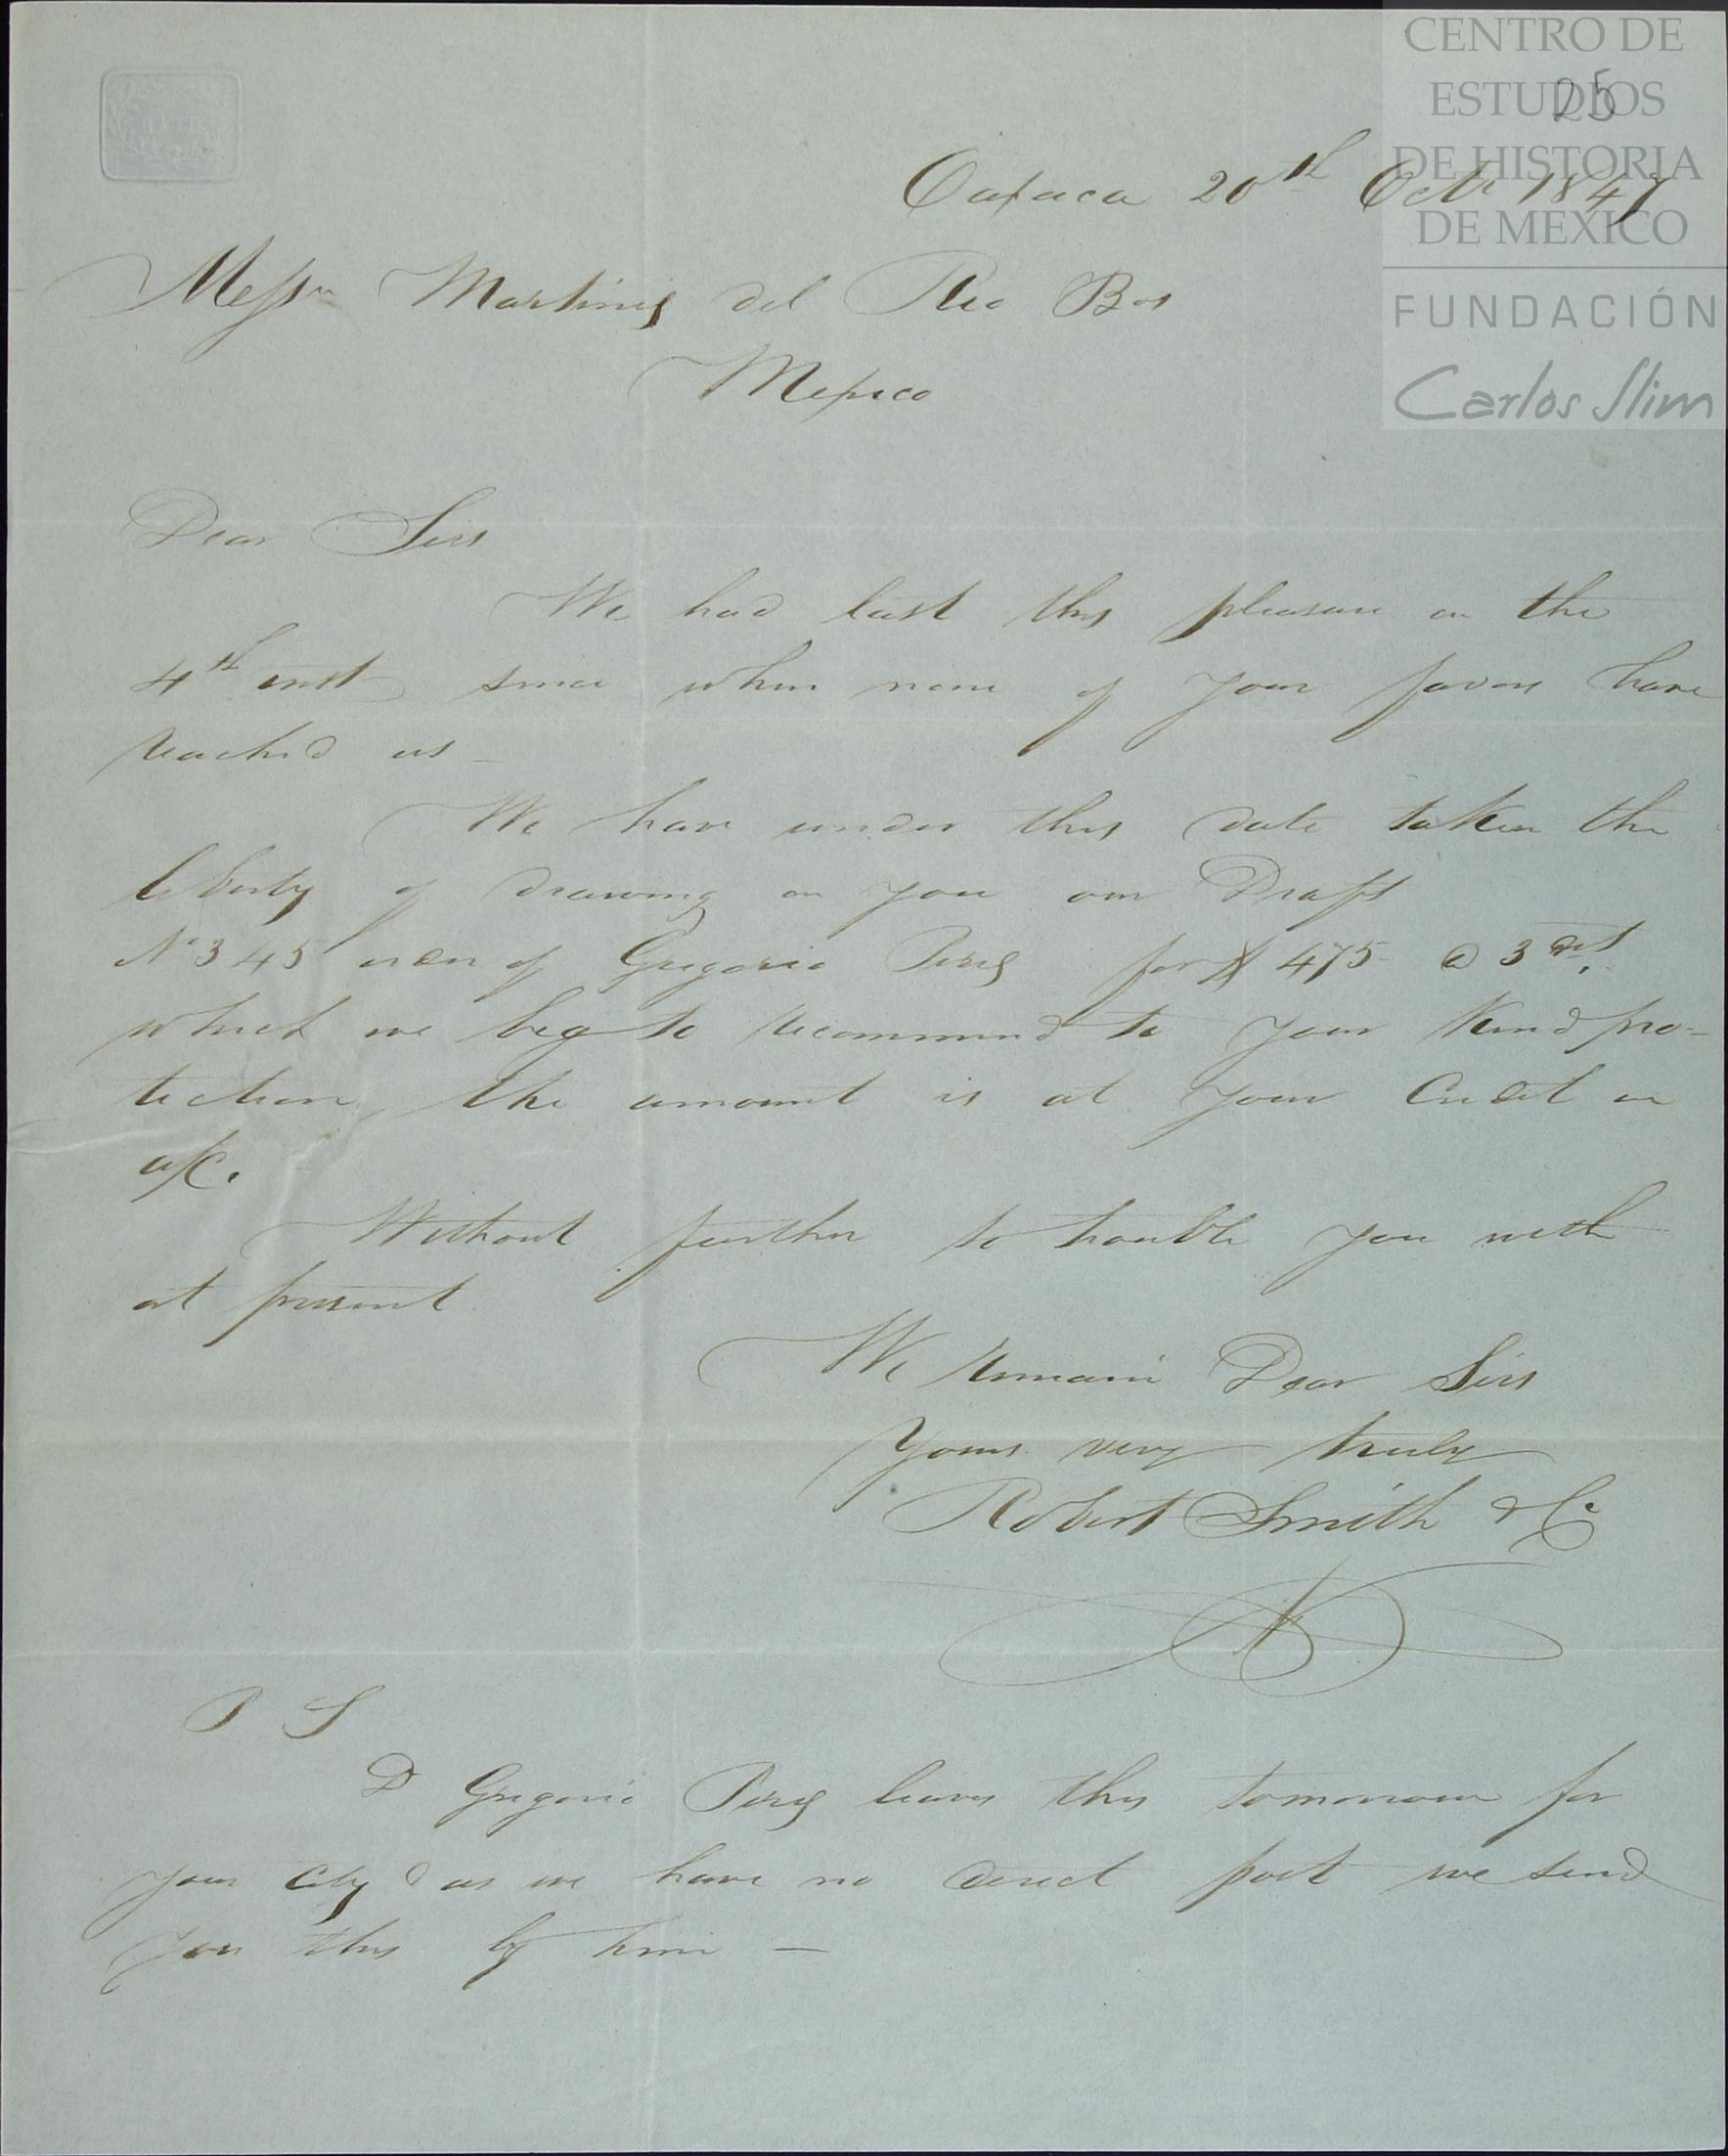 CENTRO DE
ESTUDIOS
DE HISTORIA
DE MEXICO
FUNDACIÓN
Carlos Slim
25
Oaxaca 20th Octr 1847
Messrs Martinez del Rio Bos
Mexico
Dear Sirs
We had last this pleasure on the
4th inst since when none of your favors have
reached us _
We have under this date taken the
liberty of drawing on you our Draft
No 345 order of Gregorio Perez for $ 475 @ 3 d/st
which we beg to recommend to your kind pro-
tection, the amount is at your Credit in
a/c.
Without further to trouble you with
at present.
We remain Dear Sirs
Yours very truly
Robert Smith & Co
P S
Dn Gregorio Perez leaves this tomorrow for
your city & as we have no direct post we send
you this by him —